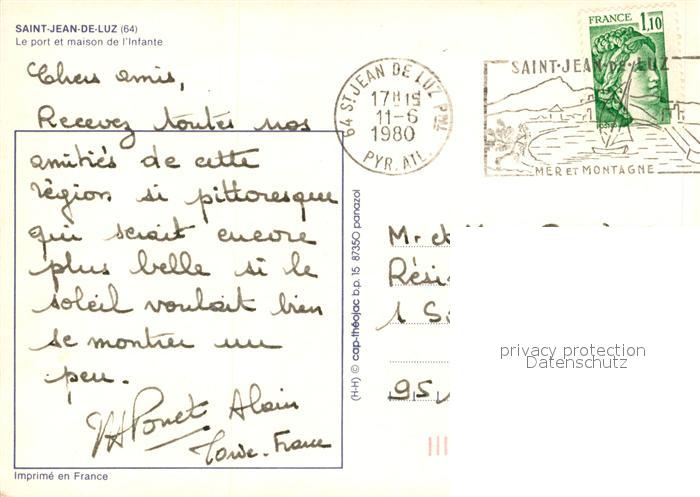 SAINT-JEAN-DE-LUZ (64)
Le port et maison de l'Infante
Chers amis,
Recevez toutes nos
amitiés de cette
région si pittoresque
qui serait encore
plus belle si le
soleil voulait bien
se montrer un
peu.
Ponet Alain
France
Imprimé en France
(H-H) © cap-théojac b.p. 15 87350 panazol
64 ST JEAN DE LUZ PPAL
17H15
11-6
1980
PYR. ATL.
FRANCE 1,10
SAINT-JEAN-DE-LUZ
MER ET MONTAGNE
Mr et
Rési
1
95
privacy protection
Datenschutz